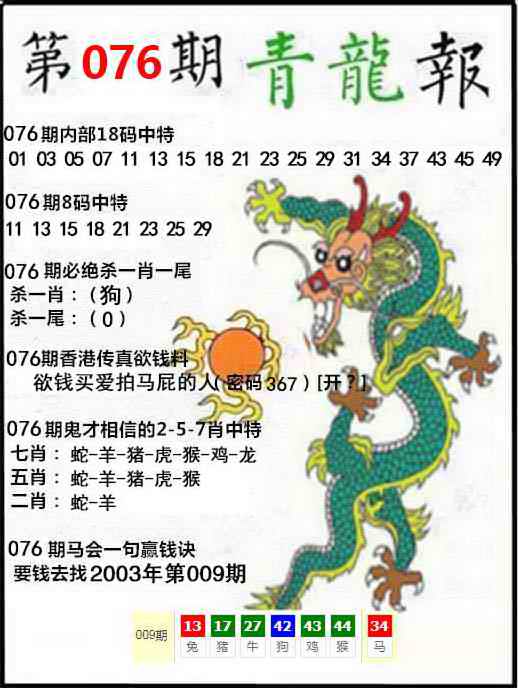 第076期 青龍報
076期内部18码中特
01 03 05 07 11 13 15 18 21 23 25 29 31 34 37 43 45 49
076期8码中特
11 13 15 18 21 23 25 29
076 期必绝杀一肖一尾
杀一肖：（狗）
杀一尾：（0）
076期香港传真欲钱料
欲钱买爱拍马屁的人(密码367)[开？]
076期鬼才相信的2-5-7肖中特
七肖：蛇-羊-猪-虎-猴-鸡-龙
五肖：蛇-羊-猪-虎-猴
二肖：蛇-羊
076 期马会一句赢钱诀
要钱去找2003年第009期
009期 13 17 27 42 43 44 34
兔 猪 牛 狗 鸡 猴 马